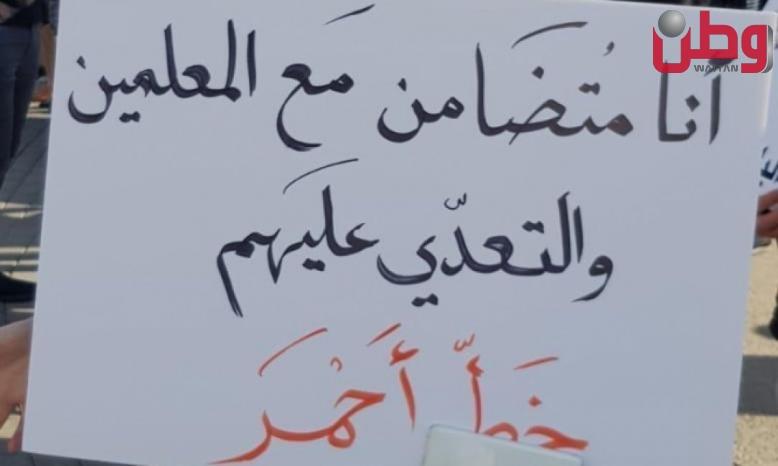 وطن
WATTAN
أنا مُتضَامن مَع المعلمين
والتعدّي عليهم
خَطّ أَحْمَر